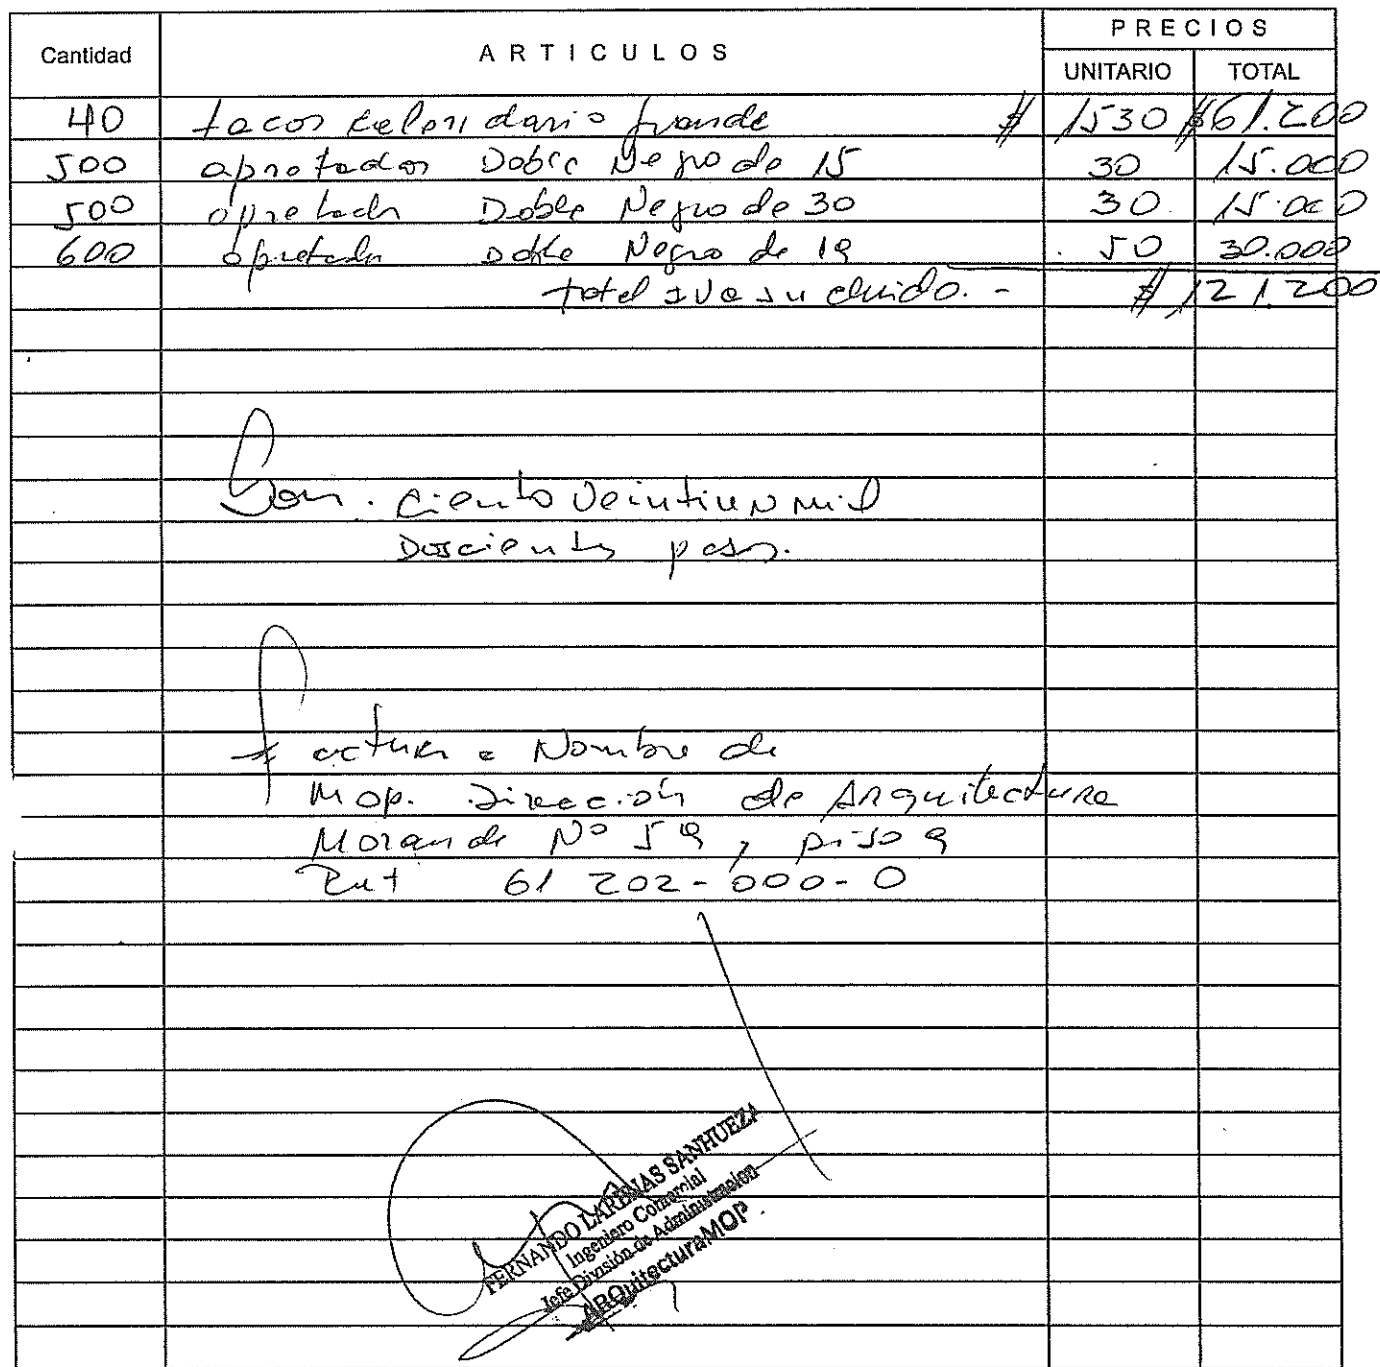 PRECIOS
Cantidad ARTICULOS UNITARIO TOTAL
40 tacos calendario grande $ 1530 $61.200
500 apretador Doble Negro de 15 30 15.000
500 apretador Doble Negro de 30 30 15.000
600 apretador Doble Negro de 19 50 30.000
total IVA incluido.- $ 121.200
Son. Ciento Veintiun mil
Doscientos pesos.
Factura a Nombre de
Mop. Dirección de Arquitectura
Morande Nº 59, piso 9
Rut 61 202-000-0
FERNANDO LARENAS SANHUEZA
Ingeniero Comercial
Jefe División de Administracion
ARQuitecturaMOP